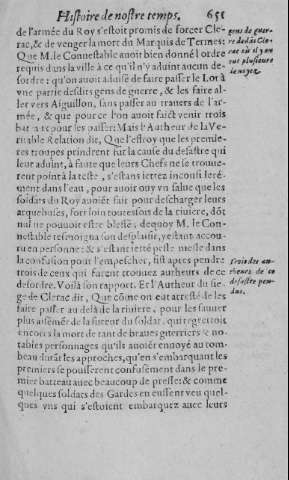 Histoire de nostre temps. 651
de l'armée du Roy s'estoit promis de forcer Cle-
rac, & de venger la mort du Marquis de Termes:
Que M. le Connestable auoit bien donné l ordre
requis dans la ville à ce qu'il n'y aduint aucun de-
sordre : qu'on auoit aduisé de faire passer le Lot à
vne partie desdits gens de guerre, & les faire al-
ler vers Aiguillon, sans passer au trauers de l'ar-
mée, & que pour ce l'on auoit faict venir trois
pour les passer: Mais l'Autheur de la Ve-
ritable Relation dit, Que l'effroy que les premie-
res troupes prindrent fut la cause du desastre qui
leur aduint, à faute que leurs Chefs ne se trouue-
rent point à la teste, s'estans iettez inconsidere-
ment dans l'eau, pour auoir ouy vn salue que les
soldats du Roy auoiét fait pour descharger leurs
acquebuses, fort loin toutesfois de la riuiere, dót
nul ne pouuoit estre blessé; dequoy M. le Con-
nestable tesmoigna son desplaisir, y estant accou-
ru en personne: & s'estant ietté pesle mesle dans
la confusion pour l'empescher, fist apres pendre
trois de ceux qui furent trouuez autheurs de ce
desordre. Voilà son rapport. Et l'Autheur du sie-
ge de Clerac dit, Que cóme on eut arresté de les
faire passer au delà de la riuiere, pour les sauuer
plus asseurémét de la fureur du soldat, qui regrettoit
encores la mort de tant de braues guerriers & no-
tables personnages qu'ils auoiét enuoyé au tom-
beau durát les approches, qu'en s'embarquant les
premiers se pousserent confusement dans le pre-
mier batteau auec beaucoup de presse: & comme
quelques soldats des Gardes en eussent veu quel-
ques vns qui s'estoient embarquez auec leurs
gens de guer-
re dedás Cle-
rac où il y en
eut plusieurs
de noyez.
Trois des au-
theurs de ce
desastre pen-
dus.